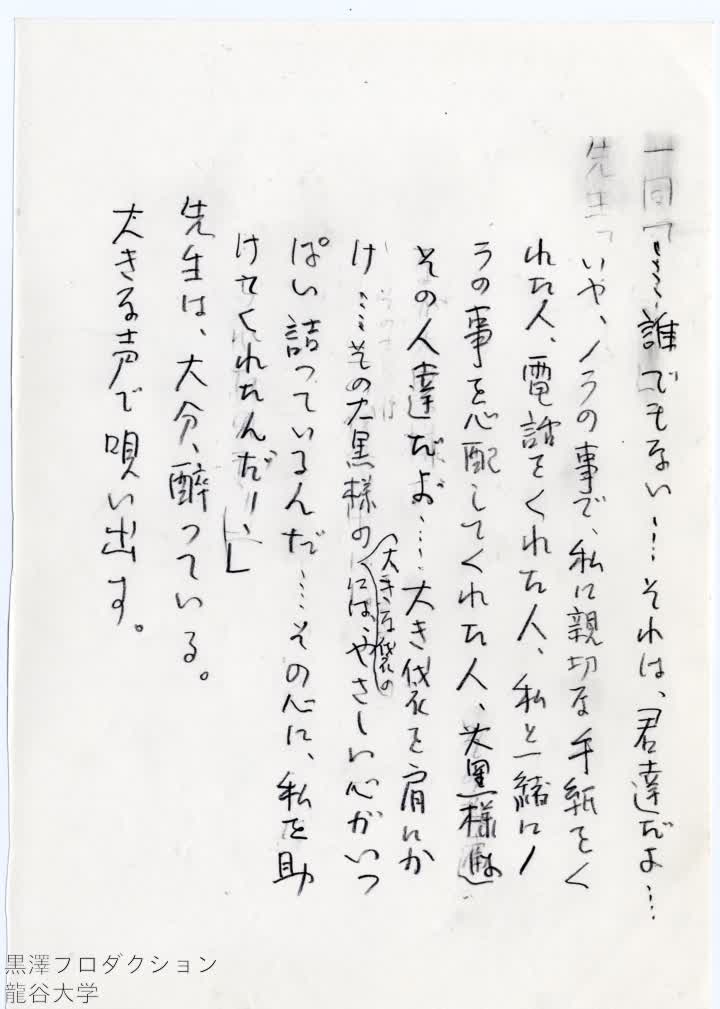 一同「……誰でもない……それは、君達だよ…
先生「いや、ノラの事で、私に親切な手紙をく
れた人、電話をくれた人、私と一緒にノ
ラの事を心配してくれた人、大黒様は
その人達だよ……大き袋を肩にか
け……その大黒様の大きな袋の
にはやさしい心がいつ
ぱい詰っているんだ……その心に、私を助
けてくれたんだ!!」
先生は、大分、酔っている。
大きな声で唄い出す。
黒澤プロダクション
龍谷大学